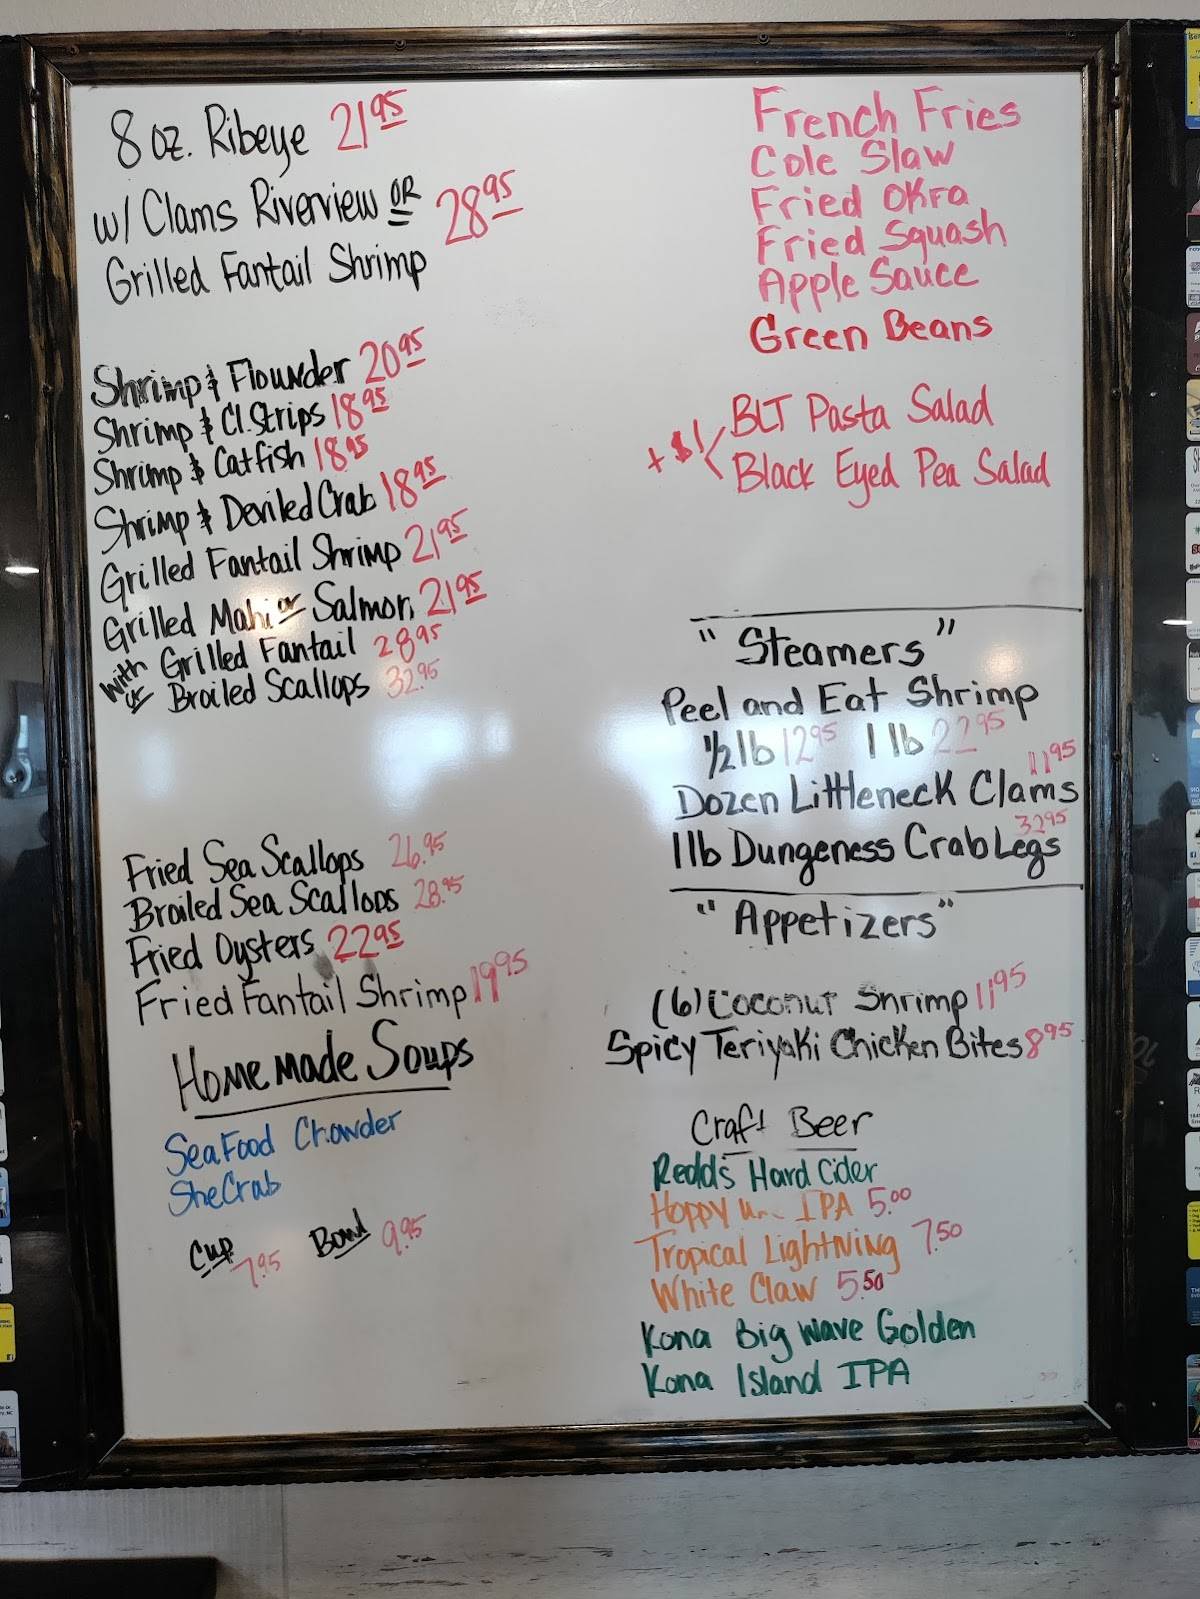 8 oz. Ribeye 21.95
w/ Clams Riverview OR
Grilled Fantail Shrimp 28.95
Shrimp & Flounder 20.95
Shrimp & Cl. Strips 18.95
Shrimp & Catfish 18.95
Shrimp & Deviled Crab 18.95
Grilled Fantail Shrimp 21.95
Grilled Mahi or Salmon 21.95
with Grilled Fantail 28.95
or Broiled Scallops 32.95
Fried Sea Scallops 26.95
Broiled Sea Scallops 28.95
Fried Oysters 22.95
Fried Fantail Shrimp 19.95
Homemade Soups
SeaFood Chowder
SheCrab
Cup 7.95 Bowl 9.95
French Fries
Cole Slaw
Fried Okra
Fried Squash
Apple Sauce
Green Beans
+ $1 BLT Pasta Salad
Black Eyed Pea Salad
"Steamers"
Peel and Eat Shrimp
1/2 lb 12.95 1 lb 22.95
Dozen Littleneck Clams 11.95
1 lb Dungeness Crab Legs 32.95
"Appetizers"
(6) Coconut Shrimp 11.95
Spicy Teriyaki Chicken Bites 8.95
Craft Beer
Redd's Hard Cider
Hoppy IPA 5.00
Tropical Lightning 7.50
White Claw 5.50
Kona Big Wave Golden
Kona Island IPA